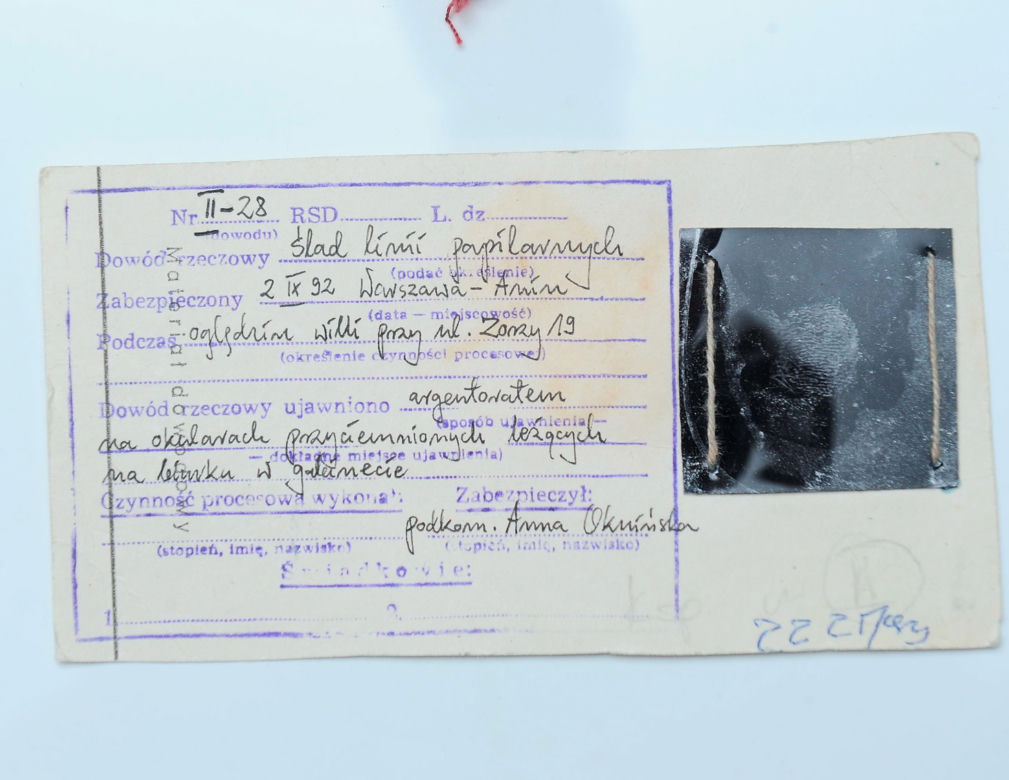 Nr II-28 RSD L. dz
(dowodu)
Dowód rzeczowy ślad linii papilarnych
(podać określenie)
Zabezpieczony 2 IX 92 Warszawa-Anin
(data — miejscowość)
Podczas oględzin willi przy ul. Zorzy 19
(określenie czynności procesowej)
Dowód rzeczowy ujawniono argentoratem
(sposób ujawnienia —
na okularach przyciemnionych leżących
— dokładne miejsce ujawnienia)
na biurku w gabinecie
Czynność procesową wykonał: Zabezpieczył:
podkom. Anna Okuińska
(stopień, imię, nazwisko) (stopień, imię, nazwisko)
Świadkowie:
1 2
Materiał dowodowy